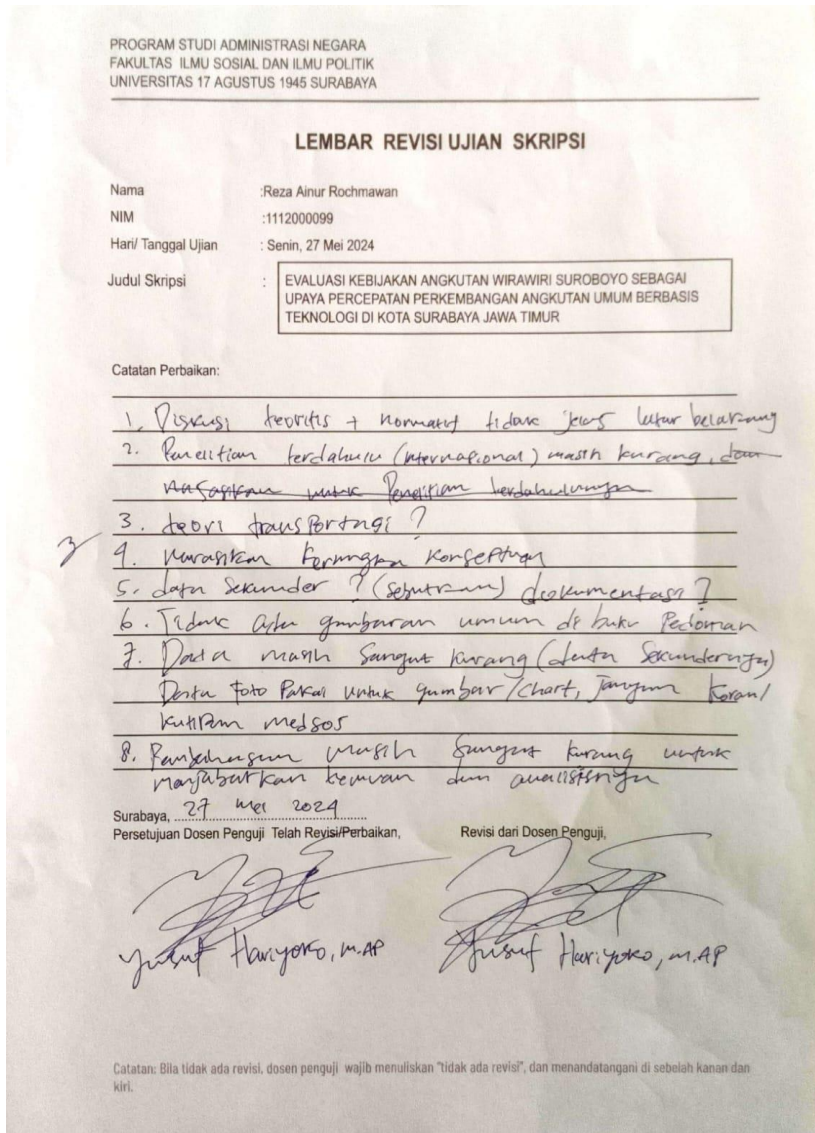 PROGRAM STUDI ADMINISTRASI NEGARA
FAKULTAS ILMU SOSIAL DAN ILMU POLITIK
UNIVERSITAS 17 AGUSTUS 1945 SURABAYA
LEMBAR REVISI UJIAN SKRIPSI
Nama :Reza Ainur Rochmawan
NIM :1112000099
Hari/ Tanggal Ujian : Senin, 27 Mei 2024
Judul Skripsi : EVALUASI KEBIJAKAN ANGKUTAN WIRAWIRI SUROBOYO SEBAGAI
UPAYA PERCEPATAN PERKEMBANGAN ANGKUTAN UMUM BERBASIS
TEKNOLOGI DI KOTA SURABAYA JAWA TIMUR
Catatan Perbaikan:
1. Diskusi teoritis + normatif tidak jelas latar belakang
2. Penelitian terdahulu (internasional) masih kurang, dan
untuk Penelitian
3. teori transportasi ?
4. narasikan kerangka konseptual
5. data Sekunder ? (sebutkan) dokumentasi ?
6. Tidak ada gambaran umum di buku Pedoman
7. Data masih Sangat kurang (data Sekundernya)
Data foto Pakai untuk gambar/chart, jangan koran/
kutipan medsos
8. Pembahasan masih sangat kurang untuk
menjabarkan temuan dan analisisnya
Surabaya, 27 Mei 2024
Persetujuan Dosen Penguji Telah Revisi/Perbaikan, Revisi dari Dosen Penguji,
Yusuf Hariyoko, M.AP Yusuf Hariyoko, M.AP
Catatan: Bila tidak ada revisi, dosen penguji wajib menuliskan "tidak ada revisi", dan menandatangani di sebelah kanan dan
kiri.